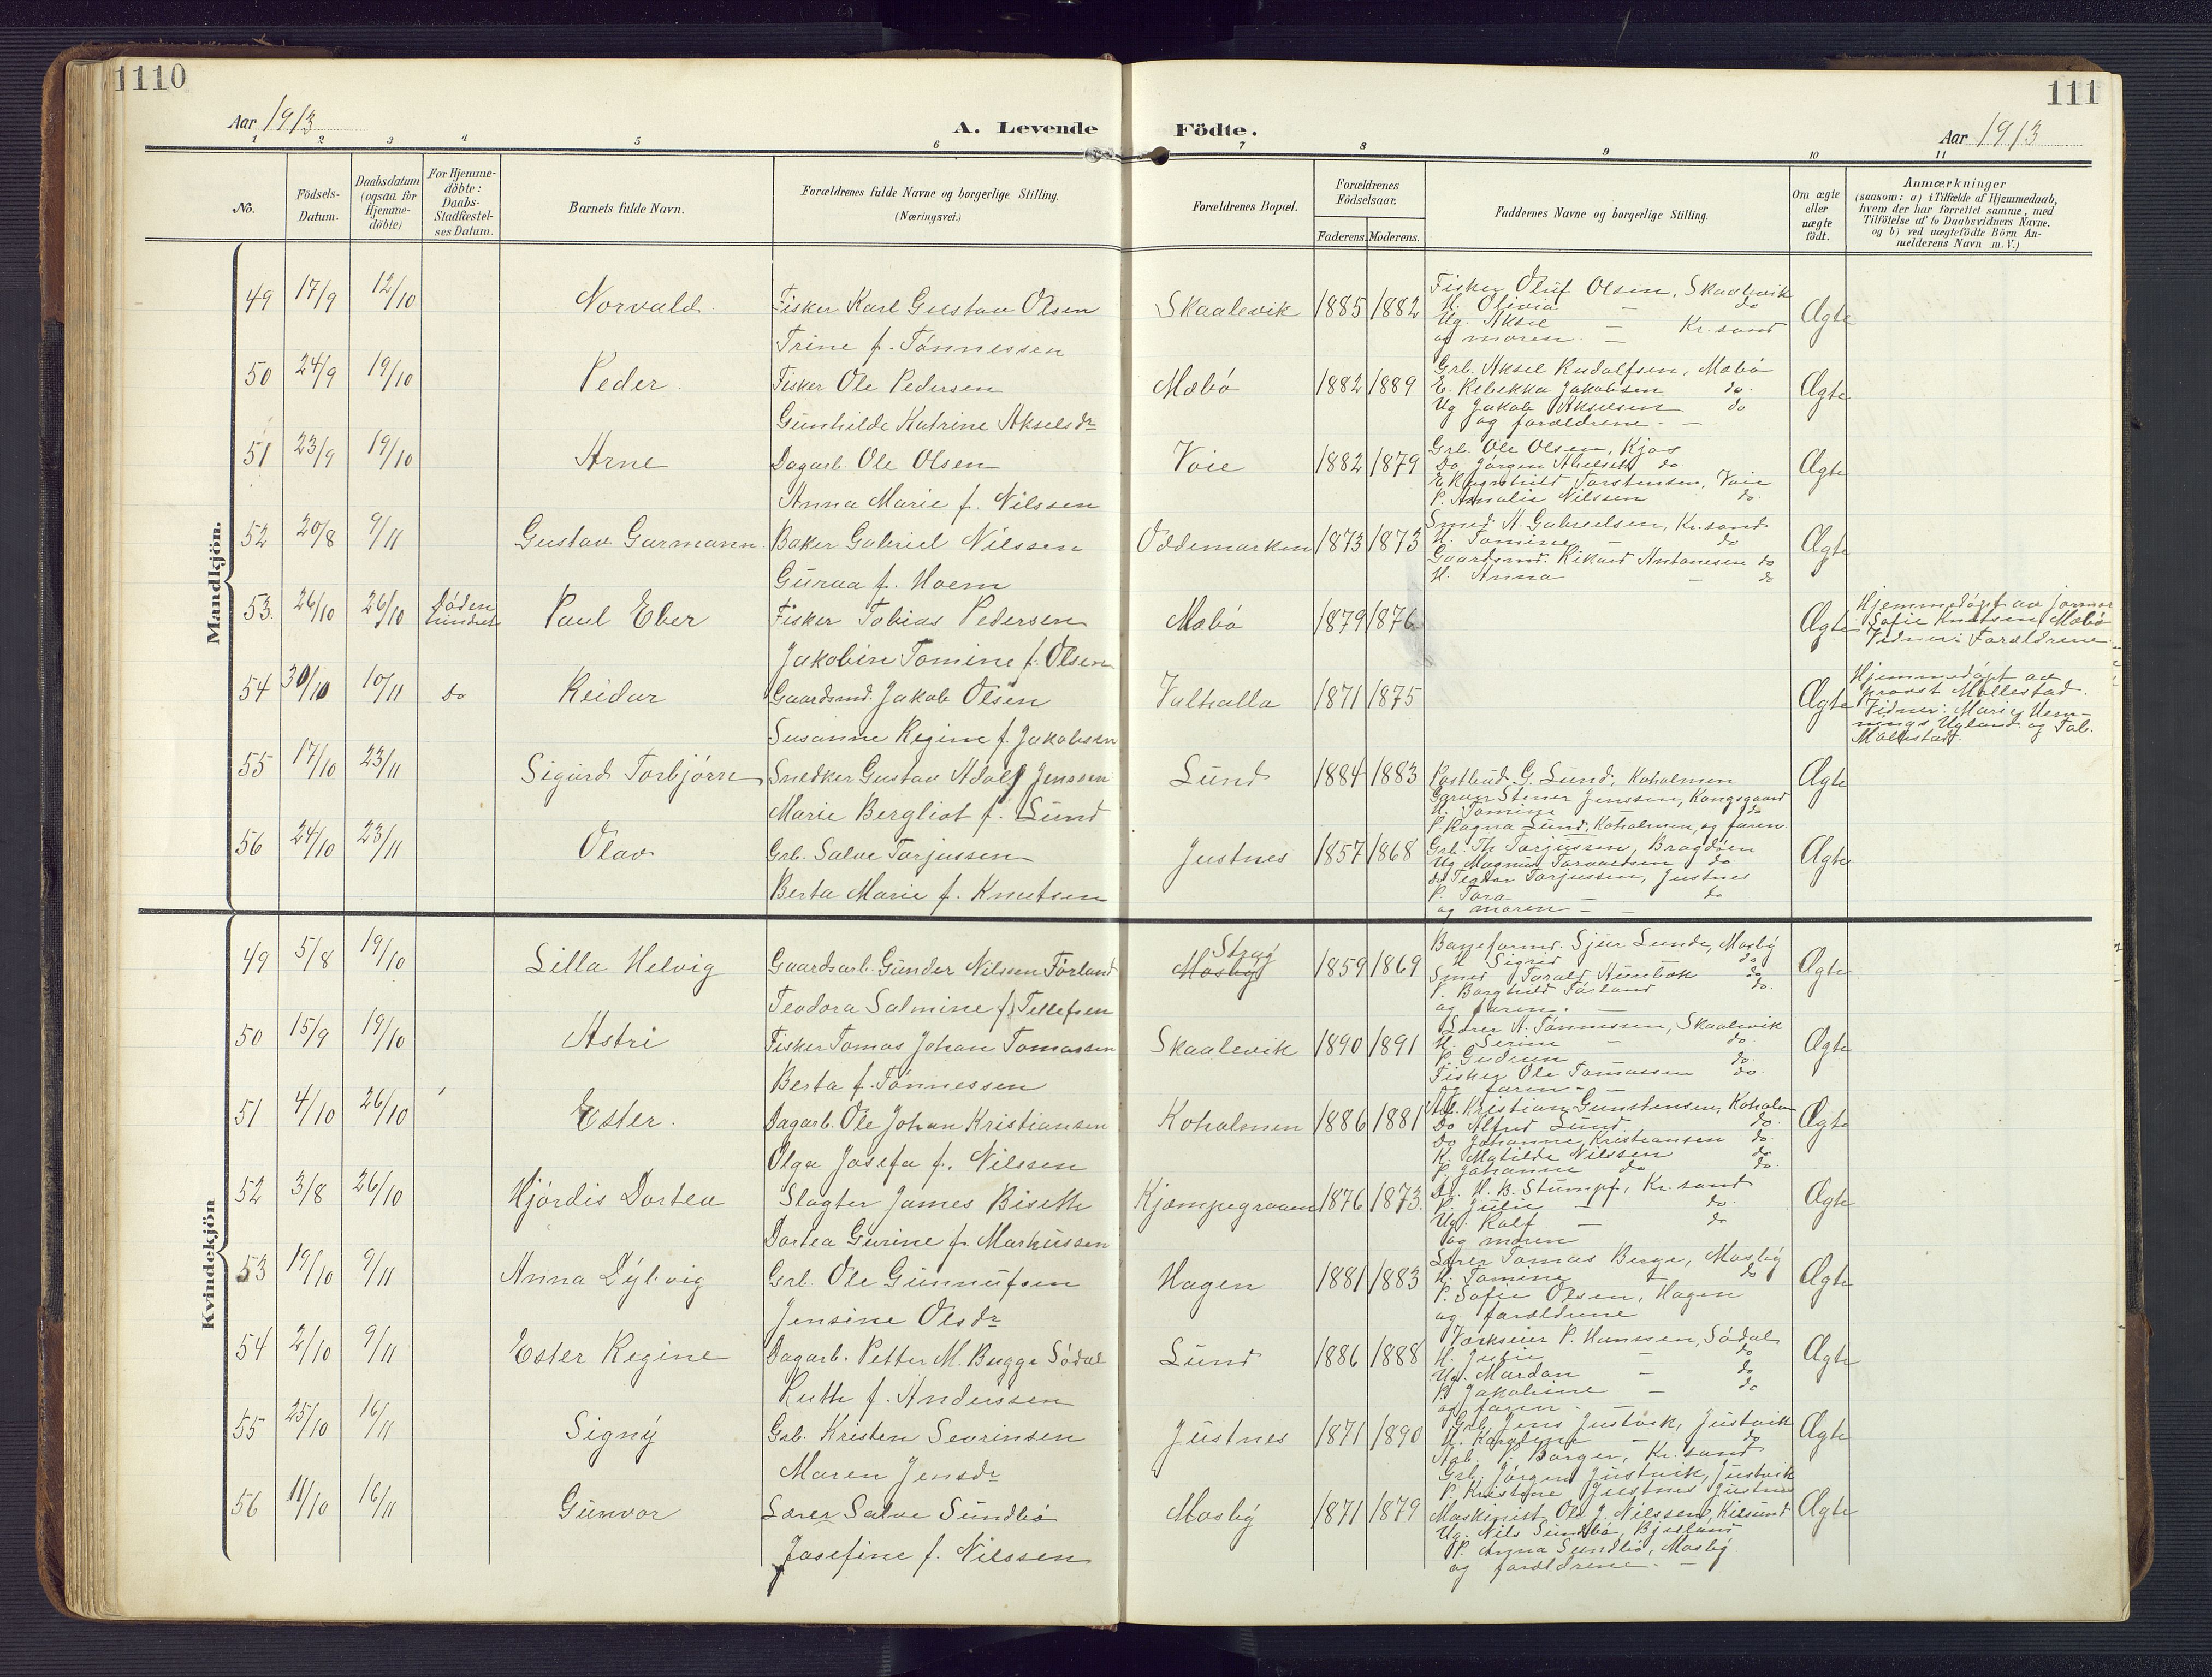 1110
111
Aar 1913
A. Levende
Födte.
Aar 1913
1 2 3 4 5 6 7 8 9 10 11
No.
Födsels-
Datum.
Daabsdatum
(ogsaa for
Hjemme-
döbte)
For Hjemme-
döbte:
Daabs-
Stadfæstel-
ses Datum.
Barnets fulde Navn.
Forældrenes fulde Navne og borgerlige Stilling.
(Næringsvei.)
Forældrenes Bopæl.
Forældrenes
Födselsaar.
Faderens. Moderens.
Faddernes Navne og borgerlige Stilling.
Om ægte
eller
uægte
födt.
Anmærkninger
(saasom: a) i Tilfælde af Hjemmedaab,
hvem der har forrettet samme, med
Tilföielse af to Daabsvidners Navne.
og b) ved uægtefödte Börn An-
melderens Navn m.V.)
Mandkjön.
49 17/9 12/10 Norvald. Fisker Karl Gustav Olsen
Trine f. Tönnessen
Skaalevik 1885 1882
Fisker Oluf Olsen, Skaalevik
H. Olivia — do
Ug. Aksel — Kr.sand
og moren. —
Ægte
50 24/9 19/10 Peder. Fisker Ole Pedersen
Gunhilde Katrine Akselsdr
Mæbö 1882 1889
Grb. Aksel Rudolfsen, Mæbö
E. Rebekka Jakobsen do.
Ug Jakob Akselsen do
og forældrene. —
Ægte
51 23/9 19/10 Arne Dagarb. Ole Olsen
Anna Marie f. Nilssen
Voie 1882 1879
Grb. Ole Olsen, Kjos
Do Jörgen do
E Ragnhild Torstensen, Voie
P. Amalie Nilssen do.
Ægte
52 20/8 9/11 Gustav Garmann. Baker Gabriel Nilssen
Guraa f. Hoem
Oddemarken 1873 1873
Smed A. Gabrielsen, Kr.sand
H. Tomine — do
Gaardsmd. Rikard Antonesen do
H. Anna — do
Ægte
53. 26/10 26/10 Döden
hindret
Paul Eber Fisker Tobias Pedersen
Jakobine Tomine f. Olsen
Mæbö 1879 1876
Ægte
Hjemmedöpt av jormor
Sofie Knutsen, Mæbö
Vidner: Forældrene.
54 30/10 10/11 Do Reidar Gaardsmd. Jakob Olsen
Susanne Regine f. Jakobsen
Valhalla 1871 1875
Ægte
Hjemmedöpt av
provst Möllestad.
Vidner: Marie Hen-
nings Ugland og Tob.
Möllestad.
55 17/10 23/11 Sigurd Torbjörn Snedker Gustav Adolf Jenssen
Marie Bergliot f. Lund
Lund 1884 1883
Postbud G. Lund, Koholmen
Garver Stener Jenssen, Kongsgaard
H. Tomine — do
P. Ragna Lund, Koholmen, og faren.
Ægte
56 24/10 23/11 Olav Grb. Salve Torjussen
Berta Marie f. Knutsen
Justnes 1857 1868
Grb. Th Torjussen, Bragdöen
Ug Magnus do
do Teodor Torjussen, Justnes
P. Tora — do
og moren —
Ægte
Kvindekjön
49 5/8 19/10 Lilla Helvig Gaardsarb. Gunder Nilssen Förland
Teodora Salmine f. Tellefsen
Stray
Mosby 1859 1869
Baneformd. Sjur Lunde, Mosby
H Sigrid — do
Smed Torald do
P. Borghild Förland do.
og faren. —
Ægte
50 15/9 19/10 Astri Fisker Tomas Johan Tomassen
Berta f. Tönnessen
Skaalevik 1890 1891
Lærer A. Tönnessen, Skaalevik
H. Serine — do.
P. Gudrun — do.
Fisker Ole Tomassen do.
og faren —
Ægte
51 4/10 26/10 Ester. Dagarb. Ole Johan Kristiansen
Olga Josefa f. Nilssen
Koholmen 1886 1881
Kristian Gunstensen, Koholm
Do Alfred Lund do.
Do Johannes Kristiansen do.
K. Matilde Nilssen do
P. Johanne do do.
Ægte
52 3/8 26/10 Hjördis Dortea Slagter James Biseth
Dortea Gurine f. Markussen
Kjæmpegraven 1876 1873.
H. B. Stumpf, Kr.sand
P. Julie — do
Ug. Ralf — do
og moren
Ægte
53 19/10 9/11 Anna Dylvig Grb. Ole Gunnufsen
Jensine Olsdr
Hagen 1881 1883
Lærer Tomas Berge, Mosby
H. Tomine — do
P. Sofie Olsen, Hagen
og forældrene
Ægte
54 2/10 9/11 Ester Regine Dagarb. Petter M. Bugge Södal
Ruth f. Anderssen
Lund 1886 1888
Værkseier P. Hanssen, Södal
H. Julie — do
Ug. Mardon — do
P. Jakobine — do
og faren. —
Ægte
55 25/10 16/11 Signy Grb. Kristen Sevrinsen
Maren Jensdr
Justnes 1871 1890
Grb. Jens Justvik, Justvik
H. Karoline — do
P. Borger, Kr.sand
Grb. Jörgen Justvik, Justvik
P. Kristine Justnes Justnes
Ægte
56 11/10 16/11 Gunvor Lærer Salve Sundbö
Josefine f. Nilssen
Mosby 1871 1879
Maskinist Ole J. Nilssen, Kilsund
Ug. Nils Sundbö, Bjelland
P. Anna Sundbö, Mosby.
og forældrene. —
Ægte